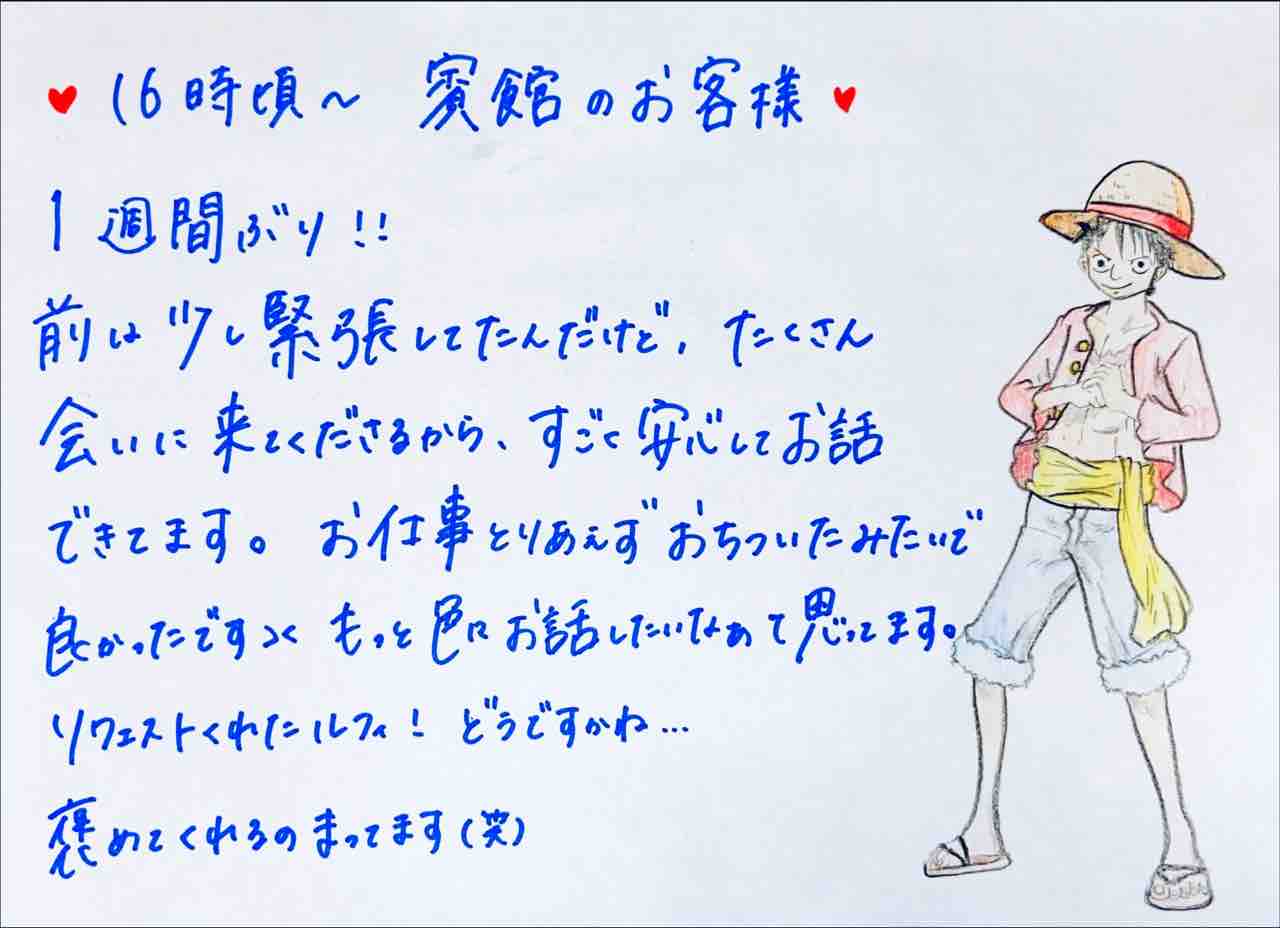 ♥16時頃～ 賓館のお客様♥
1週間ぶり!!
前は少し緊張してたんだけど、たくさん
会いに来てくださるから、すごく安心してお話
できてます。お仕事とりあえずおちついたみたいで
良かったですっ もっと色んなお話したいなぁて思ってます。
リクエストくれたルフィ! どうですかね…
褒めてくれるのまってます(笑)